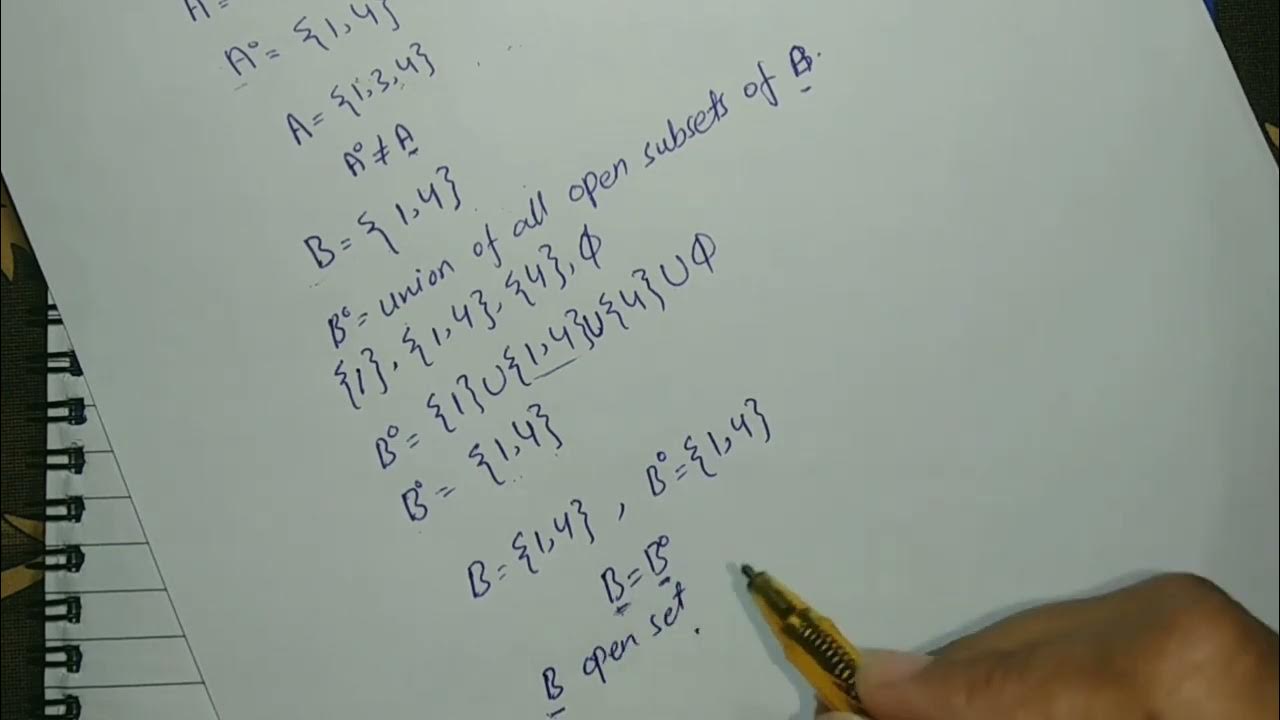 A =
A° = {1,4}
A = {1,3,4}
A° ≠ A
B = {1,4}
B° = union of all open subsets of B.
{1}, {1,4}, {4}, Φ
B° = {1}∪{1,4}∪{4}∪Φ
B° = {1,4}
B = {1,4} , B° = {1,4}
B = B°
B open set.